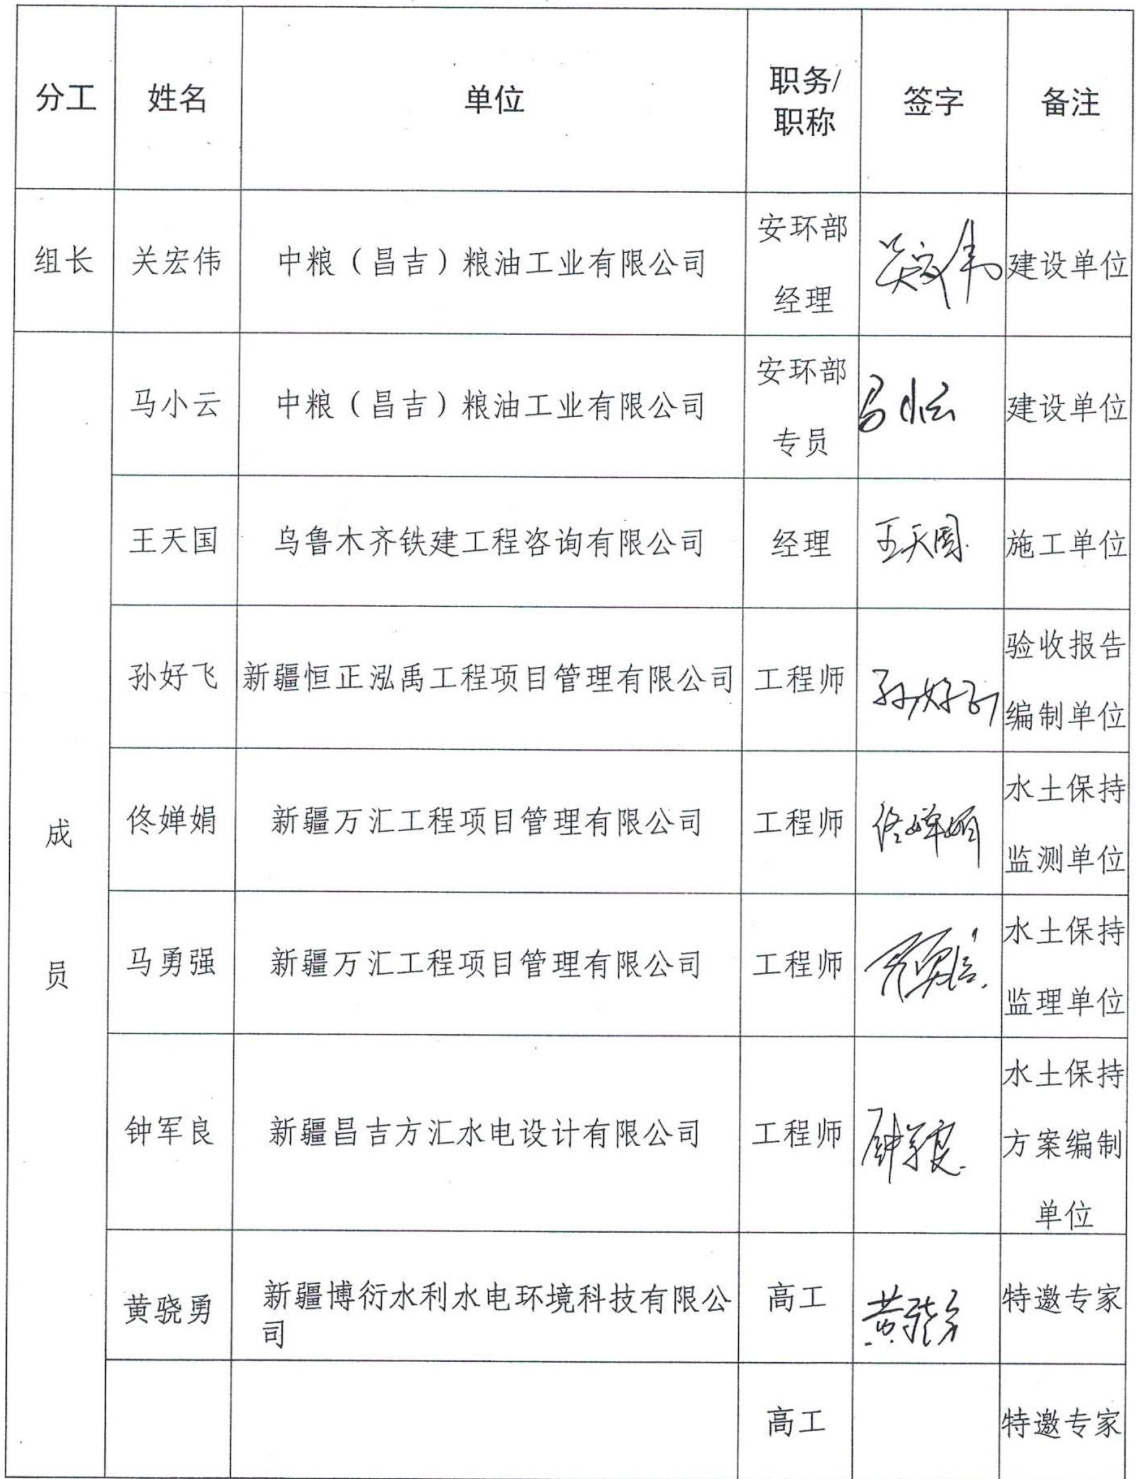 分工 姓名 单位 职务/职称 签字 备注
组长 关宏伟 中粮（昌吉）粮油工业有限公司 安环部经理 关宏伟 建设单位
成员
马小云 中粮（昌吉）粮油工业有限公司 安环部专员 马小云 建设单位
王天国 乌鲁木齐铁建工程咨询有限公司 经理 王天国 施工单位
孙好飞 新疆恒正泓禹工程项目管理有限公司 工程师 孙好飞 验收报告编制单位
佟婵娟 新疆万汇工程项目管理有限公司 工程师 佟婵娟 水土保持监测单位
马勇强 新疆万汇工程项目管理有限公司 工程师 马勇强 水土保持监理单位
钟军良 新疆昌吉方汇水电设计有限公司 工程师 水土保持方案编制单位
黄骁勇 新疆博衍水利水电环境科技有限公司 高工 黄骁勇 特邀专家
高工 特邀专家